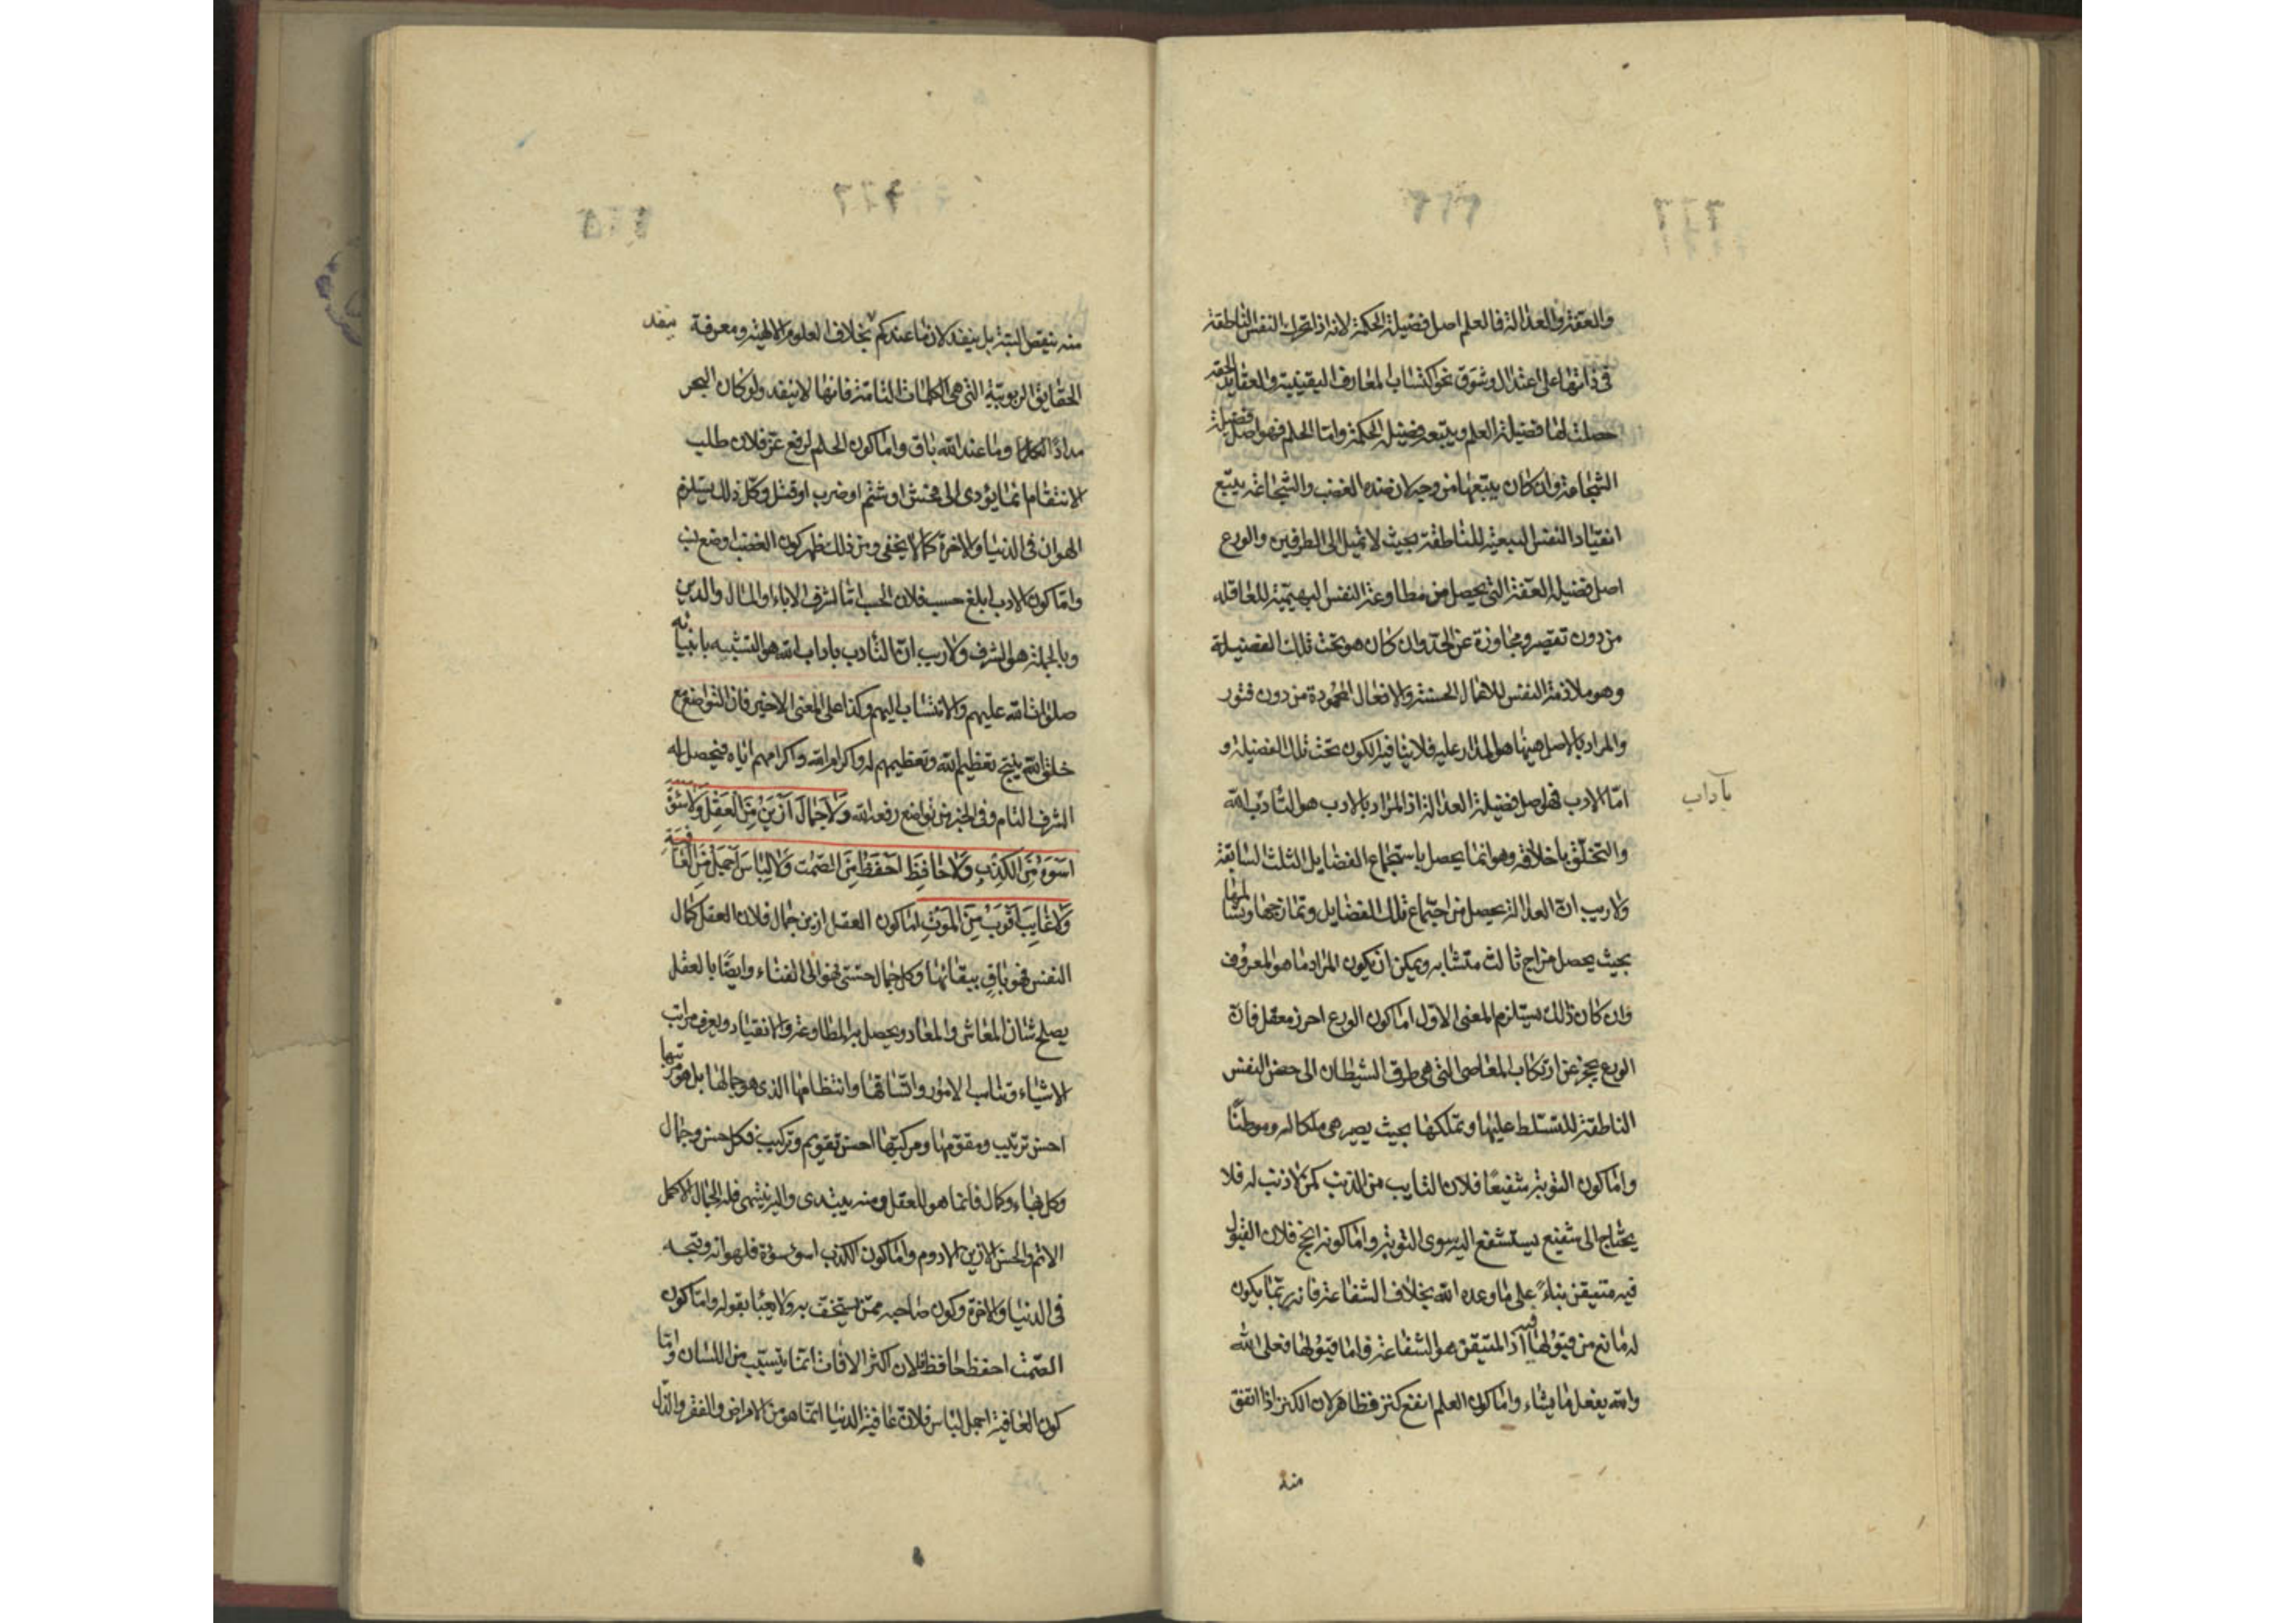 والعفة والعدالة فالعلم اصل فضيلة الحكمة لانه اذا تحرك النفس الناطقة
فى ذاتها على اعتدال وشوق نحو اكتساب المعارف اليقينية والعقايد الحقه
حصلت لها فضيلة العلم ويتبعه فضيلة الحكمة وامّا الحلم فهو اصل فضيلة
الشجاعة وان كان يتبعها من وجه لان ضده الغضب والشجاعة يتبع
انقياد النفس السبعية للناطقة بحيث لا تميل الى الطرفين والورع
اصل فضيلة العفة التى يحصل من مطاوعة النفس البهيمية للعاقله
من دون تقصير ومجاوزة عن الحدّ وان كان هو تحت تلك الفضيلة
وهو ملازمة النفس للاعمال الحسنة والافعال المحمودة من دون فتور
والمراد بالاصل هيهنا هو المدار عليه فلا ينافيه الكون تحت تلك الفضيلة و
امّا الادب فهو اصل فضيلة العدالة اذ المراد بالادب هو التأدب الله
بآداب
والتخلّق باخلاقه وهو انما يحصل باستجماع الفضايل الثلث السابقة
ولا ريب انّ العدالة يحصل من اجتماع تلك الفضايل وتمازجها وتسالمها
بحيث يحصل مزاج ثالث متشابه ويمكن ان يكون المراد ما هو المعروف
وان كان ذلك يستلزم المعنى الاول امّا كون الورع احرز معقل فانّ
الورع يحجز عن ارتكاب المعاصى التى هى طرق الشيطان الى حصن النفس
الناطقة للتسلط عليها وتملكها بحيث يصير هى ملكا له وموطنًا
وامّا كون التوبة شفيعًا فلان التايب من الذنب كمن لا ذنب له فلا
يحتاج الى شفيع يستشفع اليه سوى التوبة وامّا كونه انجح فلان القبول
فيه متيقن بناءً على ما وعده الله بخلاف الشفاعة فانه ربّما يكون
له مانع من قبولها اذ المتيقن هو الشفاعة وامّا قبولها فعلى الله
والله يفعل ما يشاء وامّا كون العلم انفع كنز فظاهر لان الكنز اذا انفق
منه
منه ينقص البتة بل ينفد لان ما عندكم بخلاف العلوم الالهية ومعرفة
ينفد
الحقايق الربوبيّة التى هى الكلمات التامّة فانها لا ينفد ولو كان البحر
مدادًا لكلمات وما عند الله باق وامّا كون الحلم ارفع عز فلان طلب
الانتقام انما يؤدى الى فحش او شتم او ضرب او قتل وكل ذلك يستلزم
الهوان فى الدنيا والاخرة كما لا يخفى ومن ذلك ظهر كون الغضب اوضع نسب
وامّا كون الادب ابلغ حسب فلان الحسب امّا لشرف الاباء او المال والدين
وبالجملة هو الشرف ولا ريب انّ التأدب باداب الله هو التشبيه بانبيائه
صلوات الله عليهم والانتساب اليهم وكذا على المعنى الاخير فان التواضع مع
خلق الله ينتج تعظيم الله وتعظيمهم له واكرام الله واكرامهم اياه فيحصل له
الشرف التام وفى الخبر من تواضع رفعه الله وَلَا جَمَالَ اَزْيَنُ مِنَ الْعَقْلِ وَلَا سَوْءَ
اَسْوَءُ مِنَ الكَذِبِ وَلَا حَافِظَ اَحْفَظُ مِنَ الصَّمتِ وَلَا لِبَاسَ اَجْمَلُ مِنَ العَافِيَةِ
وَلَا غَايِبَ اَقْرَبُ مِنَ المَوْتِ امّا كون العقل ازين جمال فلان العقل كمال
النفس فهو باقٍ ببقائها وكل جمال حسّى فهو الى الفناء وايضًا بالعقل
يصلح شان المعاش والمعاد ويحصل به المطاوعة والانقياد ويعرف مراتب
الاشياء وتناسب الامور واتساقها وانتظامها الذى هو جمالها بل هو مرتبها
احسن ترتيب ومقومها ومركبّها احسن تقويم وتركيب فكل حسن وجمال
وكل بهاء وكمال فانما هو للعقل ومنه يبتدى واليه ينتهى فله الجمال الاكمل
الاتم والحسن الازين الادوم وامّا كون الكذب اسوء سوءة فلهوانه وقبحه
فى الدنيا والاخرة وكون صاحبه ممّن يستخف به ولا يعبأ بقوله وامّا كون
الصّمت احفظ حافظ فلان اكثر الافات انّما يتسبب من اللسان وامّا
كون العافية اجمل لباس فلانّ عافية الدنيا انّما هو من الامراض والفقر والذل